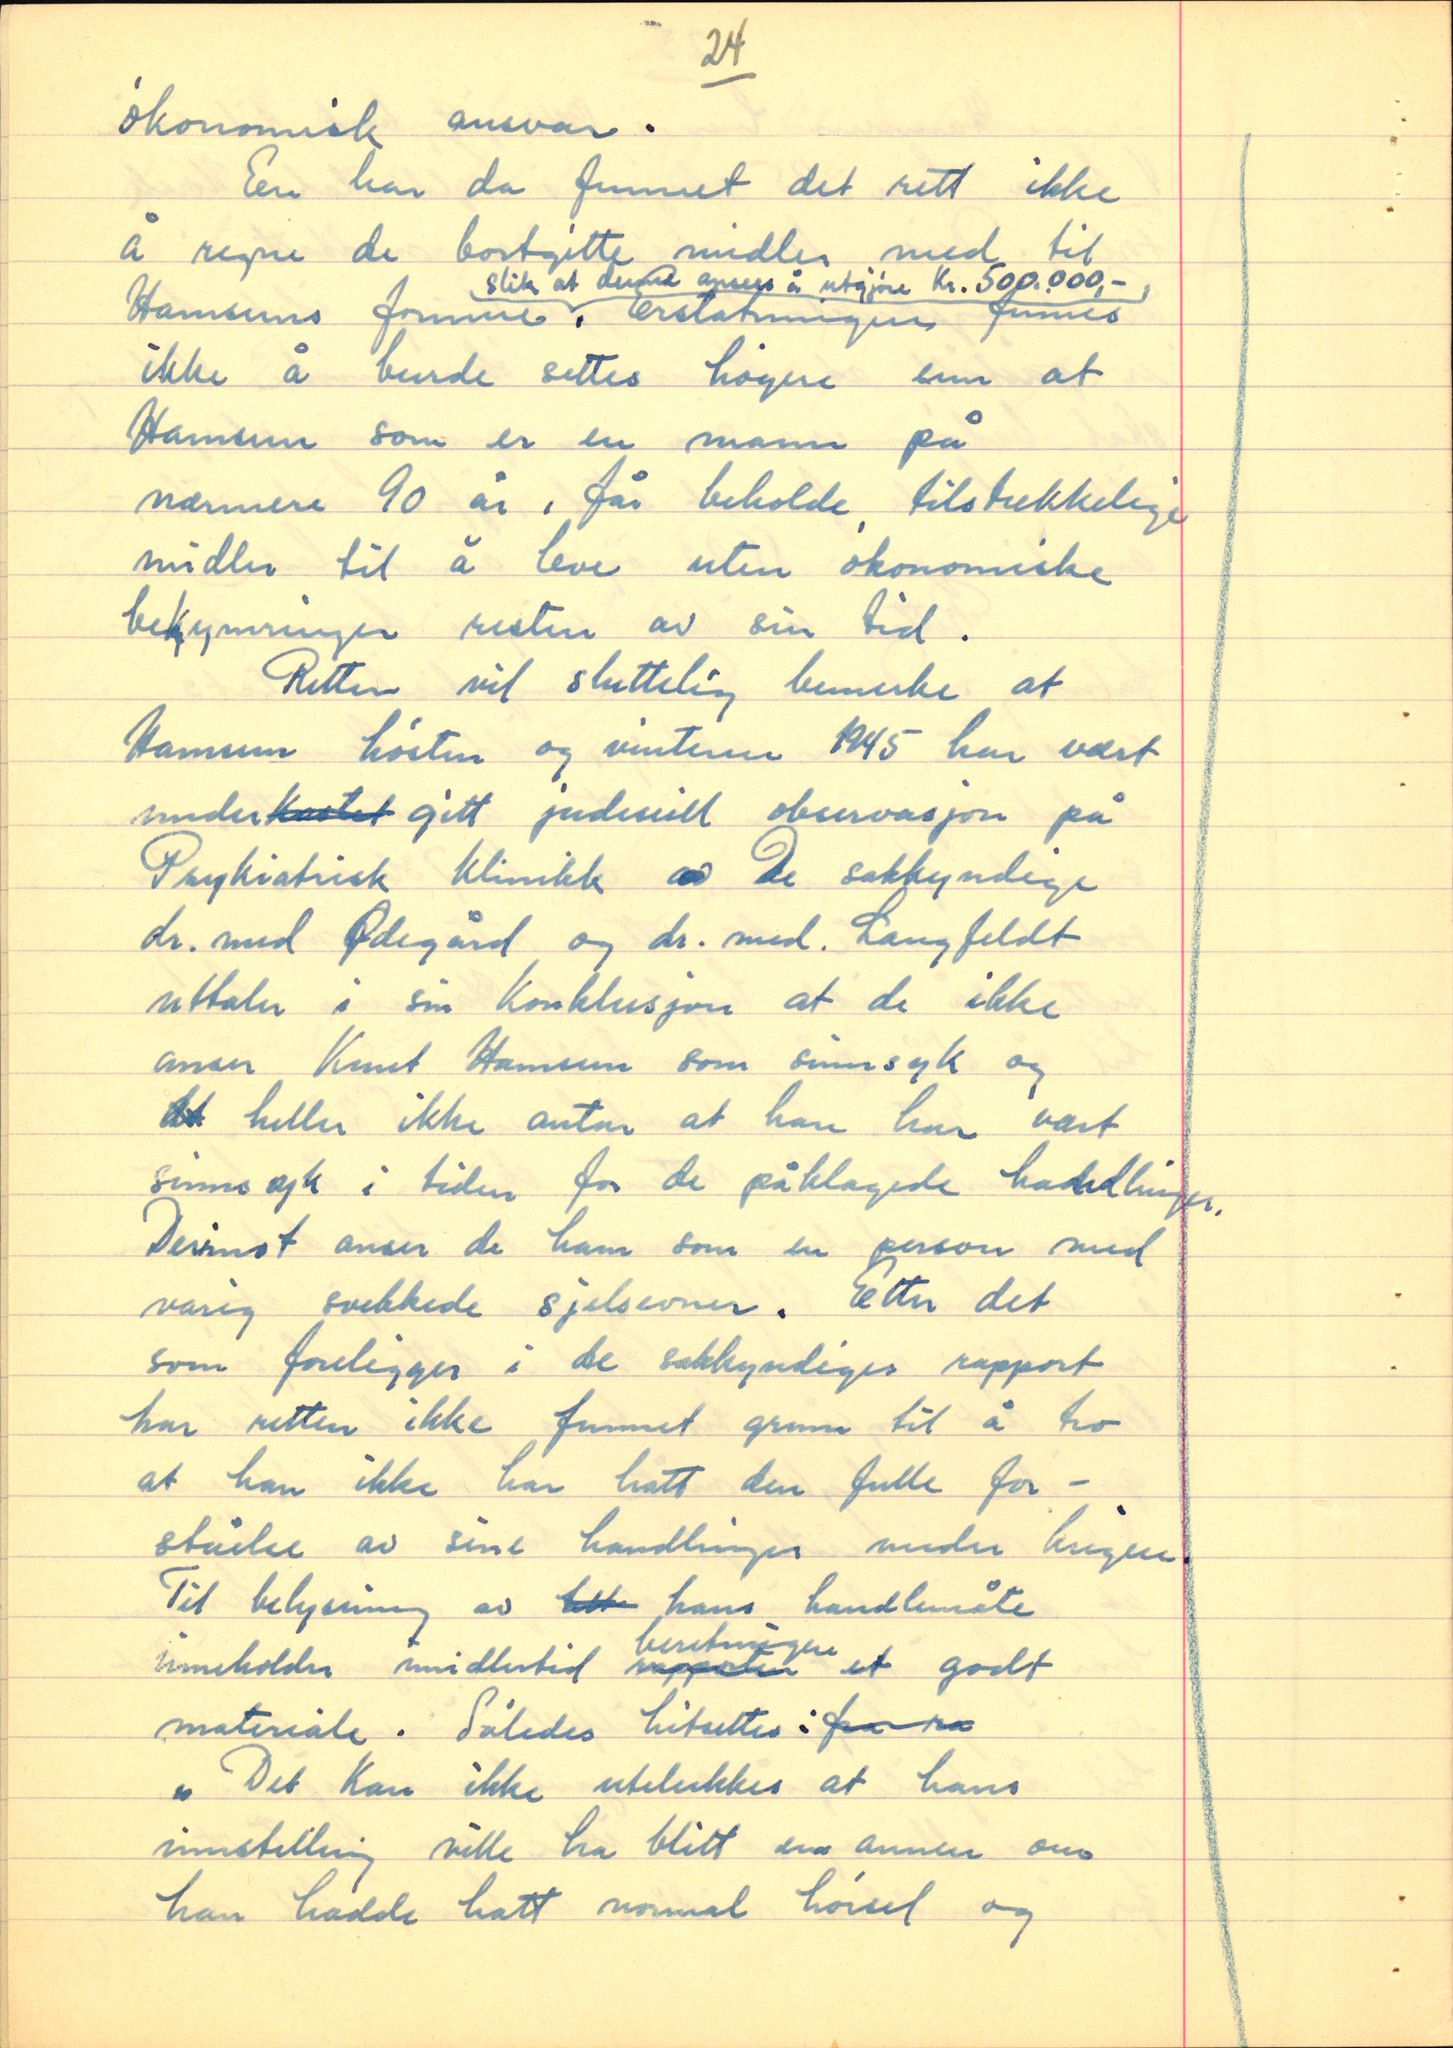 24
ökonomisk ansvar.
Een har da funnet det rett ikke
å regne de bortgitte midler med til
slik at denne anses å utgjøre Kr. 500.000,-
Hamsuns formue. Erstatningen finnes
ikke å burde settes högere enn at
Hamsun som er en mann på
nærmere 90 år, får beholde tilstrekkelige
midler til å leve uten ökonomiske
bekymringer resten av sin tid.
Retten vil sluttelig bemerke at
Hamsun hösten og vinteren 1945 har vært
underkastet gitt judisiell observasjon på
Psykiatrisk Klinikk De sakkyndige
dr. med Ødegård og dr. med. Langfeldt
uttaler i sin Konklusjon at de ikke
anser Knut Hamsun som sinnsyk og
heller ikke antar at han har vært
sinnssyk i tiden for de påklagede handlinger.
Derimot anser de ham som en person med
varig svekkede sjelsevner. Etter det
som foreligger i de sakkyndiges rapport
har retten ikke funnet grunn til å tro
at han ikke har hatt den fulle for-
ståelse av sine handlinger under krigen.
Til belysning av hans handlemåte
beretningen
inneholder imidlertid rapporten et godt
materiale. Således hitsettes: fra ra
„Det Kan ikke utelukkes at hans
innstilling ville ha blitt en annen om
han hadde hatt normal hörsel og